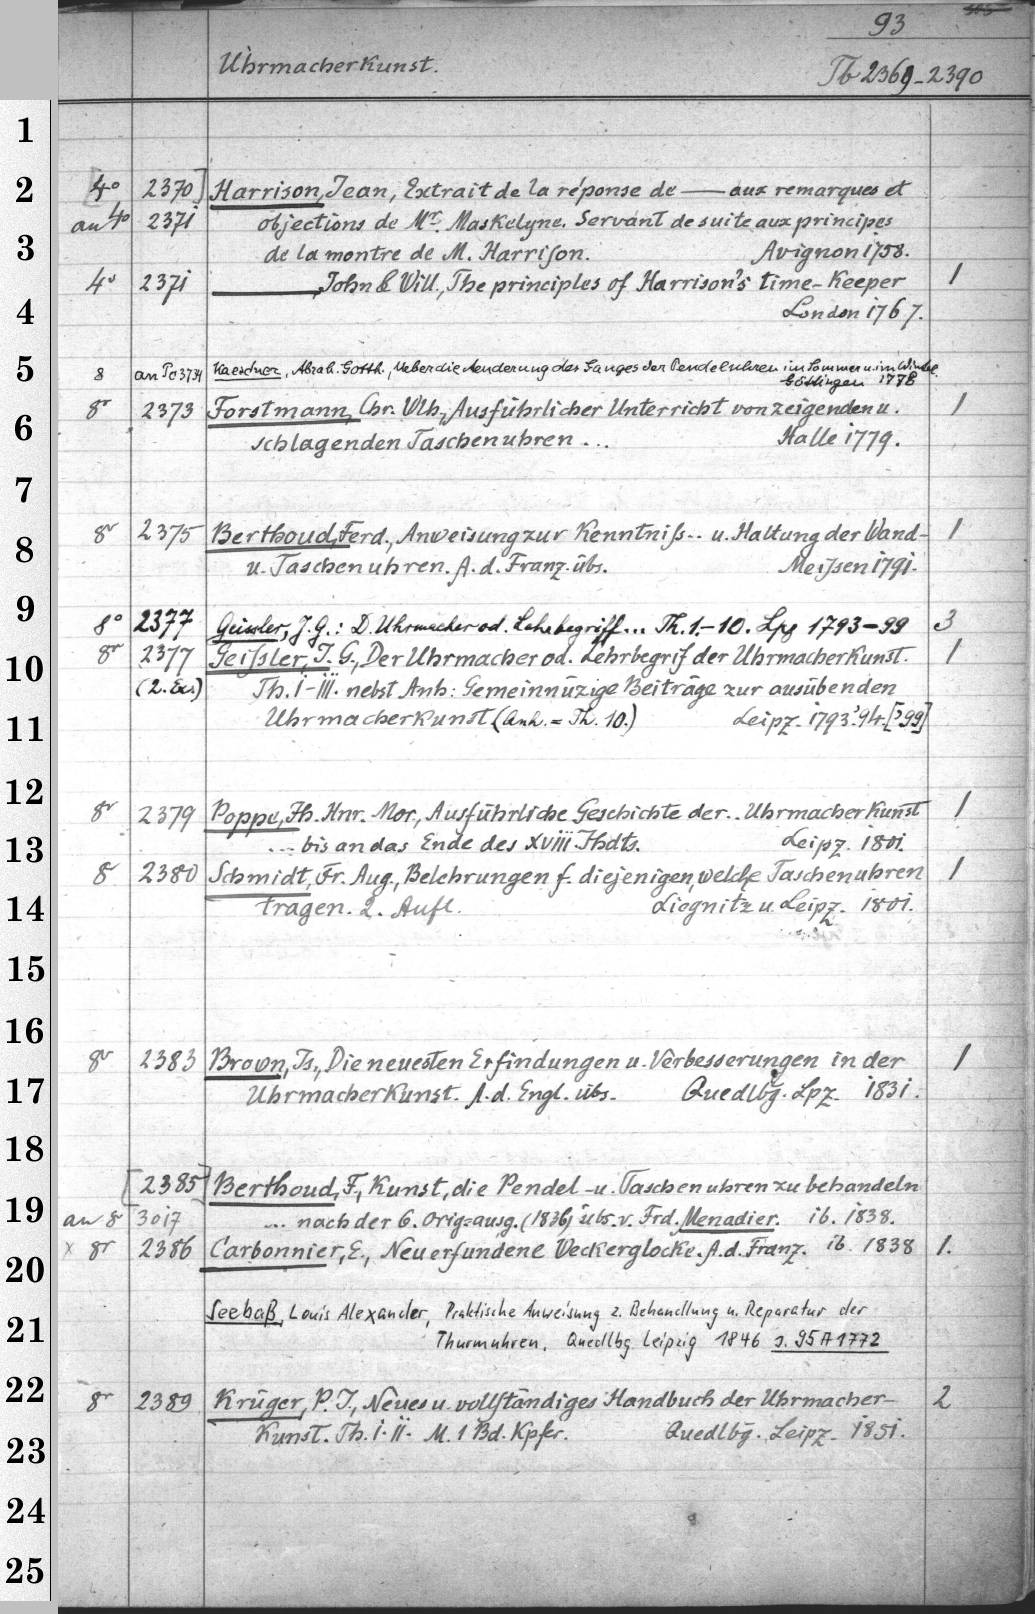 93
Uhrmacherkunst. Tb 2369-2390
1
2 [4° 2370] Harrison, Jean, Extrait de la réponse de —— aux remarques et
an 4° 2371 objections de Mr. Maskelyne. Servant de suite aux principes
3 de la montre de M. Harrison. Avignon 1758.
4° 2371 ———, John & Will., The principles of Harrison's time-keeper 1
4 London 1767.
5 8 an To 3734 Kaestner, Abrah. Gotth., Ueber die Aenderung des Ganges der Pendeluhren im Sommer u. im Winter.
Göttingen 1778
8r 2373 Forstmann, Chr. Wlh., Ausführlicher Unterricht von zeigenden u. 1
6 schlagenden Taschenuhren ... Halle 1779.
7
8r 2375 Berthoud, Ferd., Anweisung zur Kenntniſs.. u. Haltung der Wand- 1
8 u. Taschenuhren. A. d. Franz. übs. Meiſsen 1791.
9 8° 2377 Geissler, J. G.: D. Uhrmacher od. Lehrbegriff... Th. 1.-10. Lpg 1793-99 3
10 8r 2377 Geiſsler, J. G., Der Uhrmacher od. Lehrbegrif der Uhrmacherkunst. 1
(2. Ex.) Th. I-III. nebst Anh: Gemeinnüzige Beiträge zur ausübenden
11 Uhrmacherkunst (Anh. = Th. 10.) Leipz. 1793.'94.['99]
12
8r 2379 Poppe, Jh. Hnr. Mor., Ausführliche Geschichte der.. Uhrmacherkunst 1
13 ... bis an das Ende des XVIII Jhdts. Leipz. 1801.
8r 2380 Schmidt, Fr. Aug., Belehrungen f. diejenigen, welche Taschenuhren 1
14 tragen. 2. Aufl. Liegnitz u. Leipz. 1801.
15
16
8r 2383 Brown, Js., Die neuesten Erfindungen u. Verbesserungen in der 1
17 Uhrmacherkunst. A. d. Engl. übs. Quedlbg. Lpz. 1831.
18
[2385] Berthoud, F., Kunst, die Pendel- u. Taschenuhren zu behandeln
19 an 8 3017 ... nach der 6. Orig=ausg. (1836) übs. v. Frd. Menadier. ib. 1838.
x 8r 2386 Carbonnier, E., Neu erfundene Weckerglocke. A. d. Franz. ib. 1838 1.
20
Seebaß, Louis Alexander, Praktische Anweisung z. Behandlung u. Reparatur der
21 Thurmuhren. Quedlbg. Leipzig 1846 s. 95 A 1772
22 8r 2389 Krüger, P. J., Neues u. vollſtändiges Handbuch der Uhrmacher- 2
23 kunst. Th. I. II. M. 1 Bd. Kpfer. Quedlbg. Leipz. 1851.
24
25